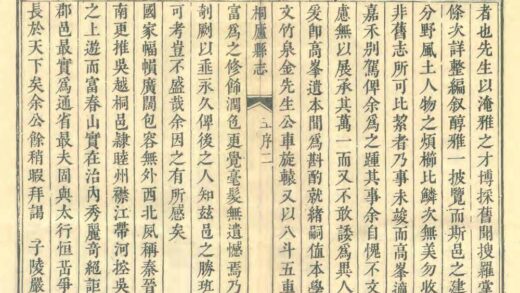 者也先生以淹雅之才博採舊聞搜羅掌
條次詳整編叙醇雅一披覽而斯邑之建
分野風土人物之煩櫛比鱗次無美勿收
非舊志所可比絜者乃事未竣而高峯適
嘉禾別駕俾余爲之踵其事余自愧不文
慮無以展承其萬一而又不敢諉爲異人
爰卽高峯遺本間爲斟酌就緒嗣值本學
文竹泉金先生公車旋轅又以八斗五車
桐廬縣志 序二
富爲之修飾潤色更覺毫髮無遺憾焉乃
剞劂以垂永久俾後之人知玆邑之勝班
可考豈不盛哉余因之有所感矣
國家幅幀廣闊包容無外西北夙稱秦晉
南更推吳越桐邑隸睦州襟江帶河控吳
之上游而富春山實在治內秀麗奇絕詎
郡邑最實爲通省最夫固與太行恒嵒爭
長於天下矣余公餘稍暇拜謁 子陵嚴